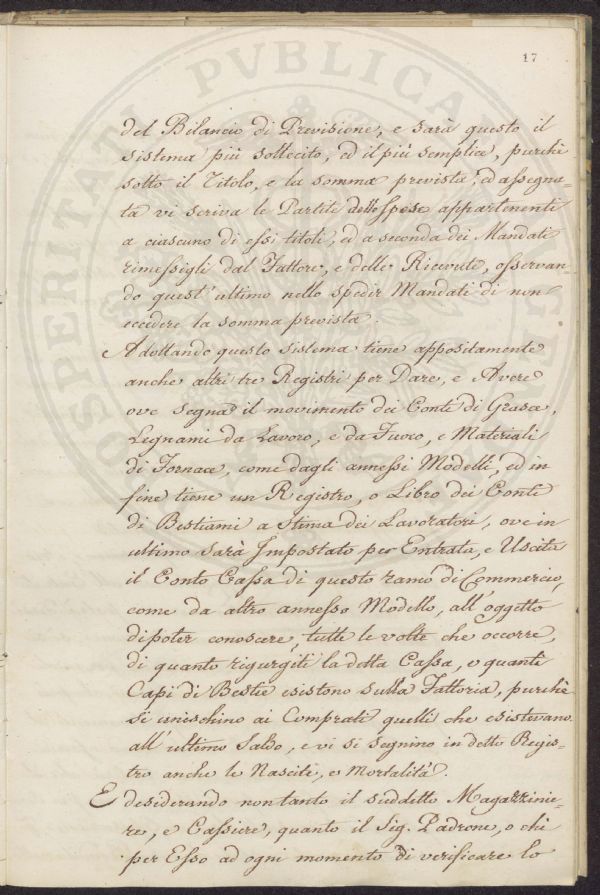 17
del Bilancio di Previsione, e sarà questo il
sistema più sollecito, ed il più semplice, purchè
sotto il Titolo, e la somma prevista, ed assegna=
ta vi scriva le Partite delle Spese appartenenti
a ciascuno di essi titoli, ed a seconda dei Mandati
rimessigli dal Fattore, e delle Ricevute, osservan=
do quest'ultimo nello spedir Mandati di non
eccedere la somma prevista.
Adottando questo sistema tiene appositamente
anche altri tre Registri per Dare, e Avere
ove segna il movimento dei Conti di Grasce,
Legnami da Lavoro, e da Fuoco, e Materiali
di Fornace, come dagli annessi Modelli, ed in
fine tiene un Registro, o Libro dei Conti
di Bestiami a stima dei Lavoratori, ove in
ultimo sarà Impostato per Entrata, e Uscita
il Conto Cassa di questo ramo di Commercio,
come da altro annesso Modello, all'oggetto
di poter conoscere, tutte le volte che occorre,
di quanto rigurgiti la detta Cassa, o quanti
Capi di Bestie esistono sulla Fattoria, purchè
si unischino ai Comprati quelli che esistevano
all'ultimo Saldo, e vi si segnino in detto Regis=
tro anche le Nascite, e Mortalità.
E desiderando non tanto il suddetto Magazzinie=
re, e Cassiere, quanto il Sig. Padrone, o chi
per Esso ad ogni momento di verificare lo
PROSPERITATI PVBLICAE